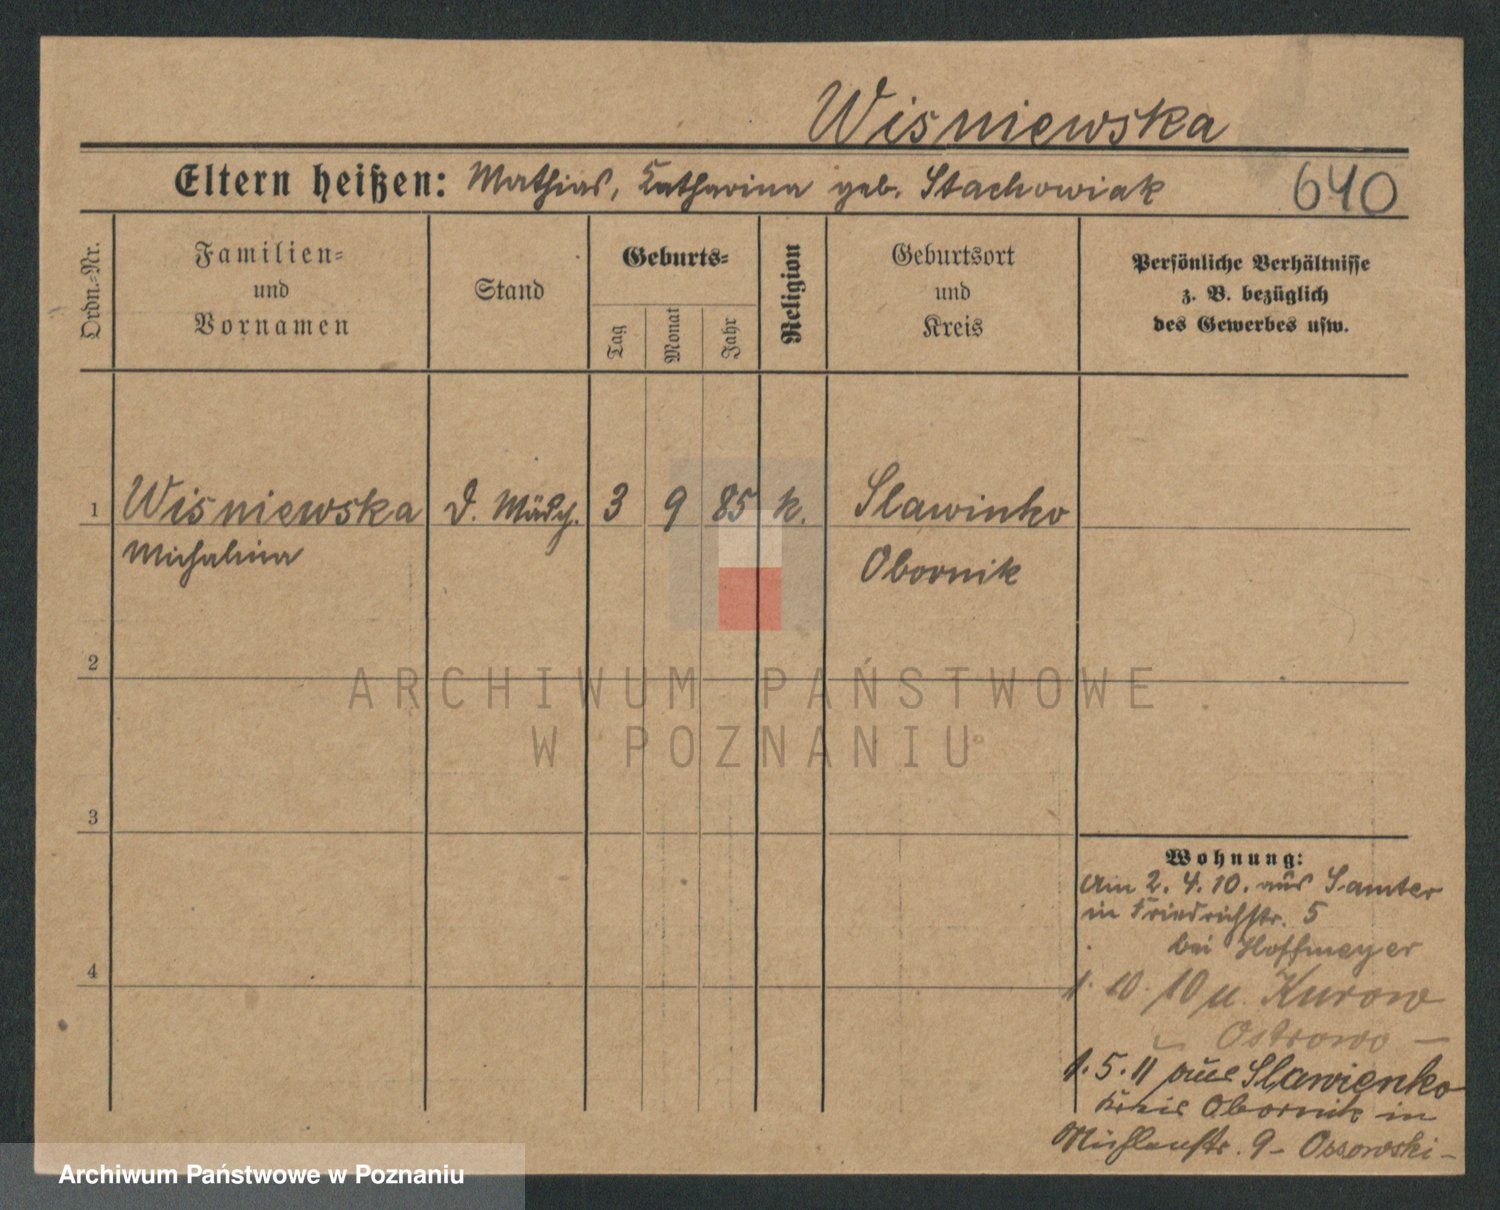 Wisniewska
Eltern heißen: Mathias, Katharina geb. Stachowiak 640
Ordn.-Nr.
Familien- und Vornamen
Stand
Geburts-
Tag
Monat
Jahr
Religion
Geburtsort und Kreis
Persönliche Verhältnisse z. B. bezüglich des Gewerbes usw.
1 Wisniewska d. Mädch. 3 9 85 k. Slawinko
Michalina Obornik
2
ARCHIWUM PAŃSTWOWE
W POZNANIU
3
Wohnung:
Am 2. 4. 10. aus Samter
in Friedrichstr. 5
bei Hoffmeyer
4
1. 10. 10 n. Kurow
Ostrowo –
1. 5. 11 aus Slawienko
Kreis Obornik in
Mühlenstr. 9 – Ossowski –
Archiwum Państwowe w Poznaniu